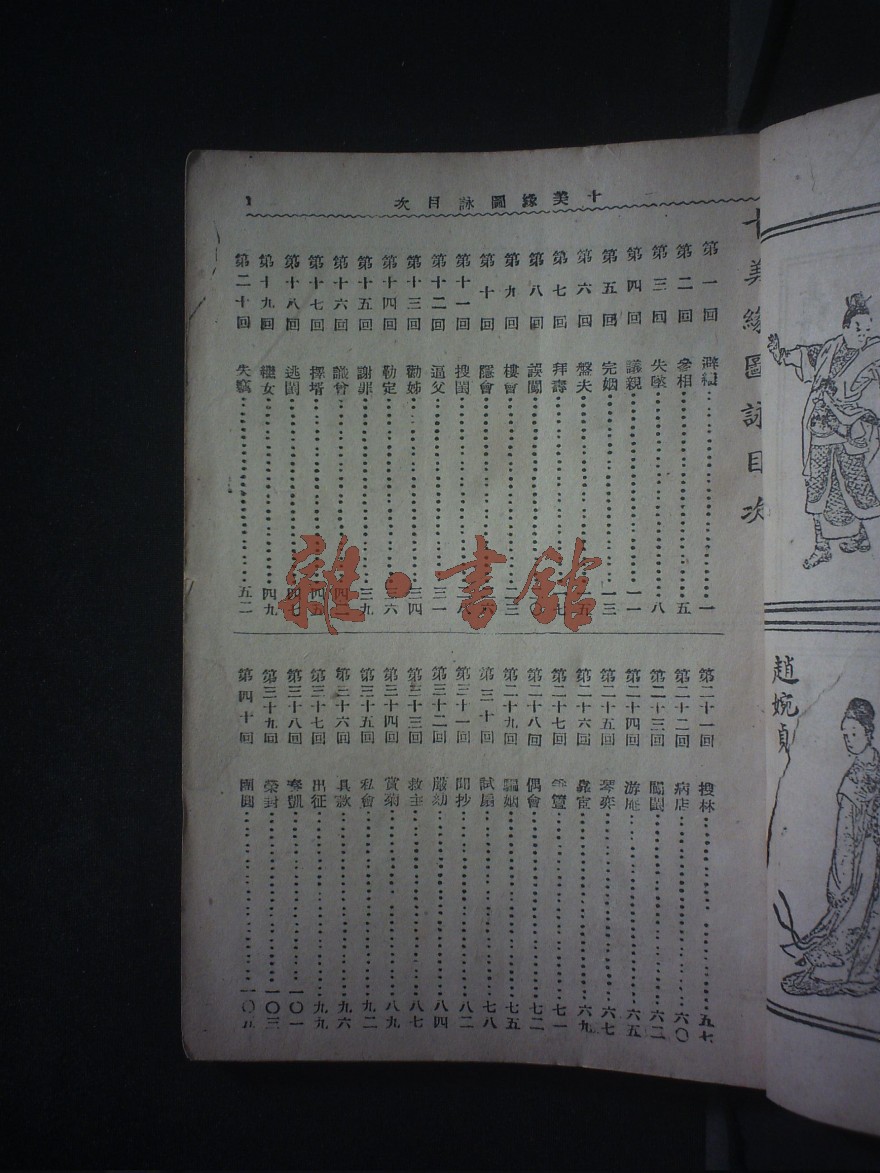 十美緣圖詠目次
1
十美緣圖詠目次
第一回 避禍 一
第二回 參相 五
第三回 失墜 八
第四回 議親 一一
第五回 完姻 一三
第六回 盤夫 五
第七回 拜壽 七
第八回 誤闖 〇
第九回 樓會 二三
第十回 隱會
第十一回 搜閨 八
第十二回 逼父 三一
第十三回 勸姊 三四
第十四回 勒定 六
第十五回 謝罪 三九
第十六回 識會 四二
第十七回 擇壻 四五
第十八回 逃閨 四七
第十九回 繼女 四九
第二十回 失竊 五二
第二十一回 搜林 五七
第二十二回 病店 六〇
第二十三回 鬧闖 六二
第二十四回 游庵 六五
第二十五回 琴弈 六七
第二十六回 宦 六九
第二十七回 七一
第二十八回 偶會 七二
第二十九回 騙姻 七五
第三十回 試扇 七八
第三十一回 聞抄 八二
第三十二回 嚴劾 八四
第三十三回 救主 八七
第三十四回 賞菊 八九
第三十五回 私會 九二
第三十六回 具歡 九六
第三十七回 出征 九九
第三十八回 奏凱 一〇一
第三十九回 榮封 一〇三
第四十回 團圓 一〇五
趙婉貞
雜·書館